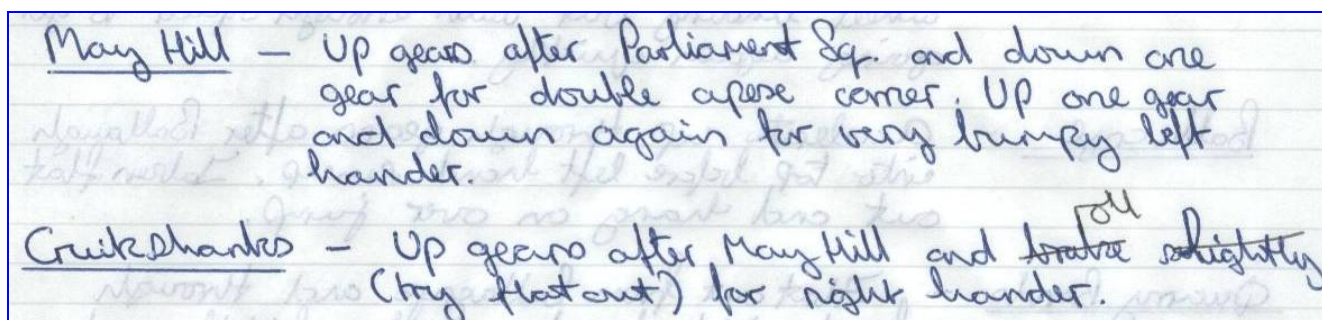 May Hill — Up gears after Parliament Sq. and down one
gear for double apexe corner. Up one gear
and down again for very bumpy left
hander.
Cruikshanks — Up gears after May Hill and brake roll slightly
(try flat out) for right hander.